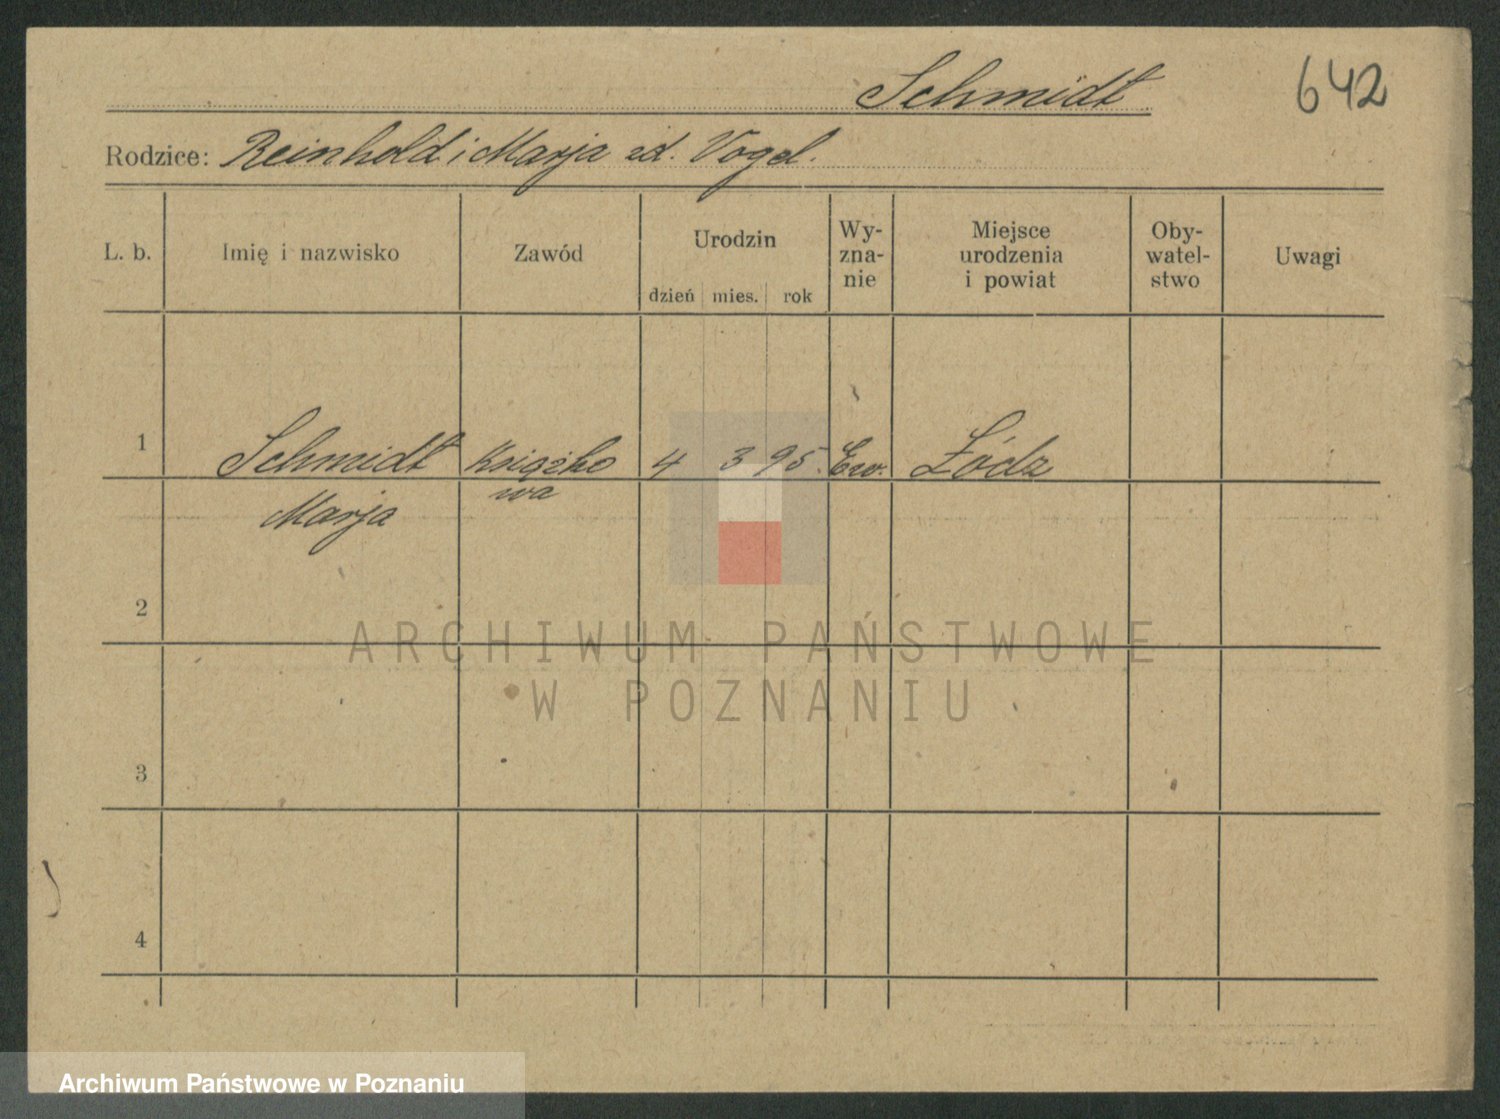 Schmidt
642
Rodzice: Reinhold i Marja zd. Vogel.
L. b. Imię i nazwisko Zawód Urodzin dzień mies. rok Wy-
zna-
nie Miejsce
urodzenia
i powiat Oby-
watel-
stwo Uwagi
1 Schmidt Książko 4 3 95. Ew. Łódz
wa
Marja
2
ARCHIWUM PAŃSTWOWE
W POZNANIU
3
4
Archiwum Państwowe w Poznaniu